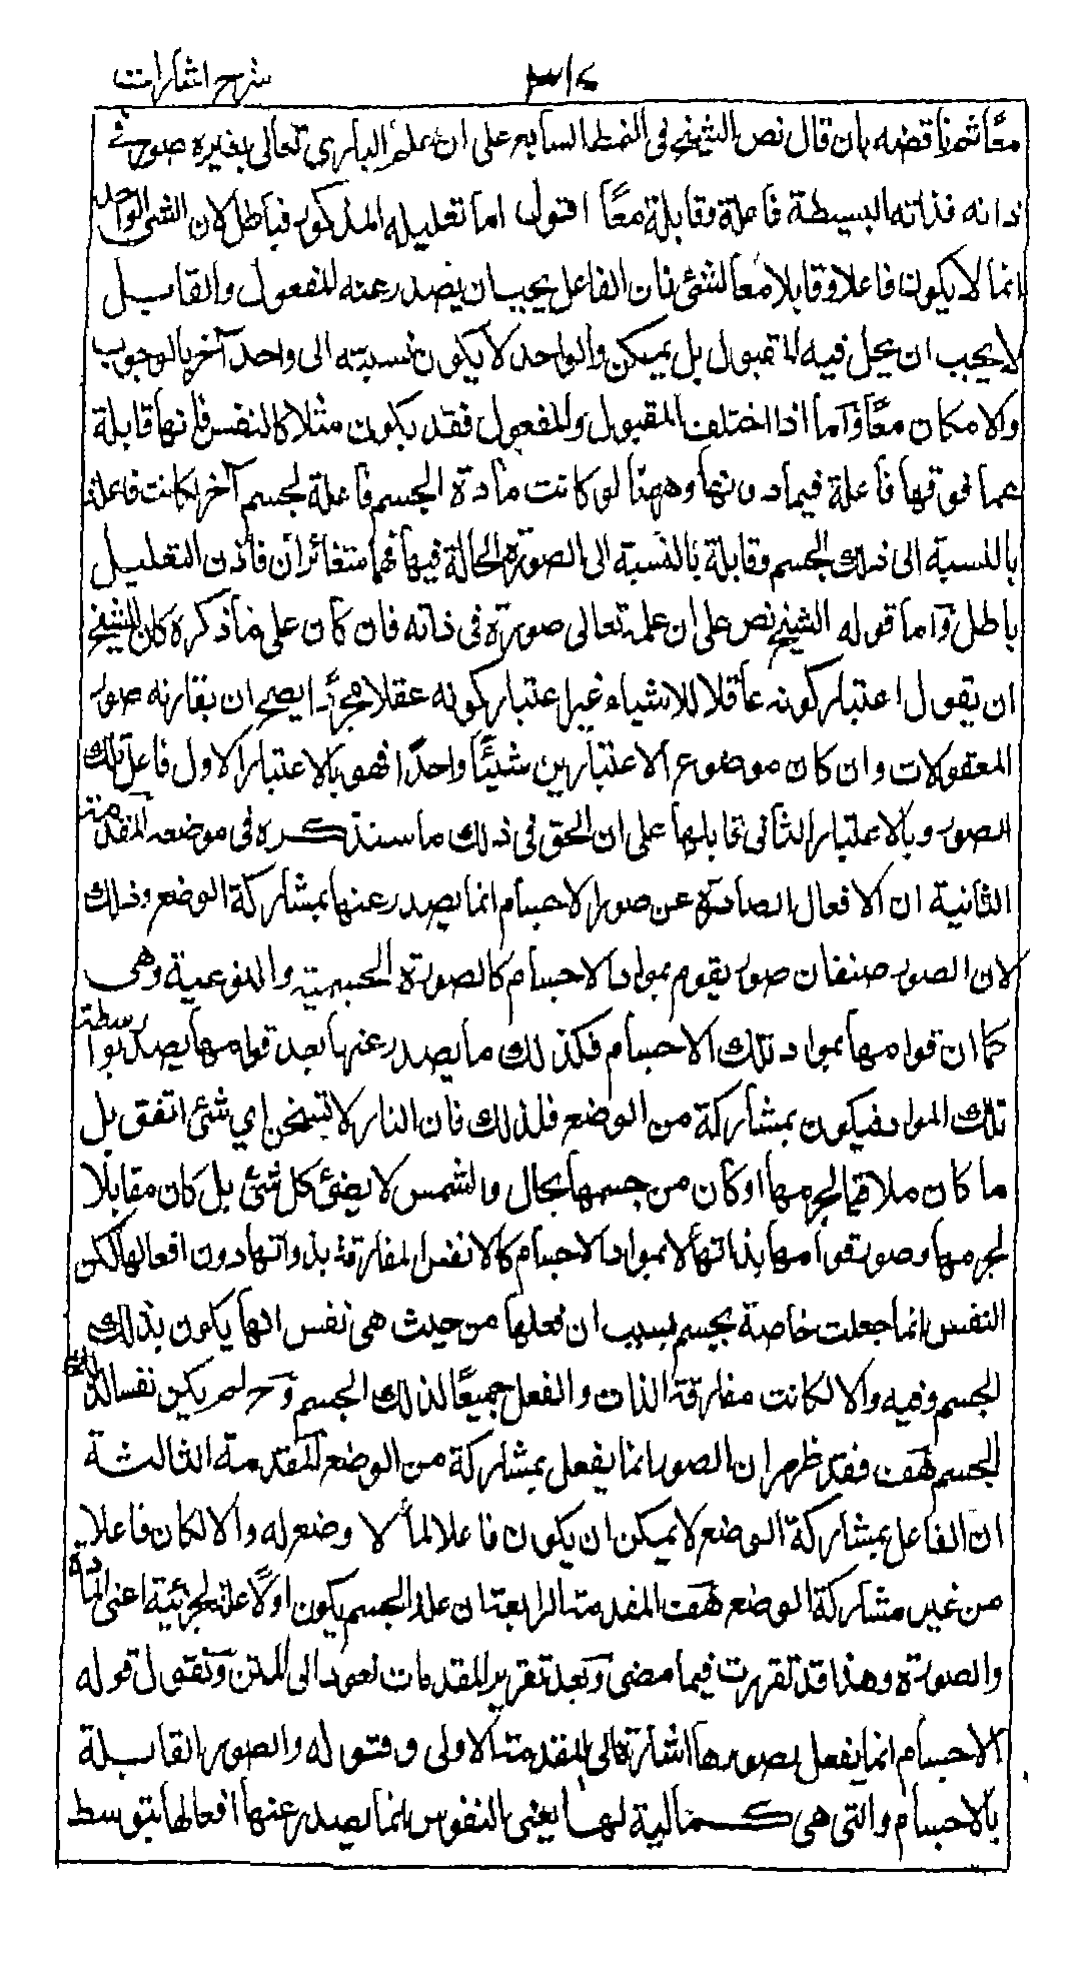 شرح اشارات
٣١٤
معًا ثم ناقضه بان قال نص الشيخ في النمط السابع على ان علم الباري تعالى بغيره صور في
ذاته فذاته البسيطة فاعلة وقابلة معًا اقول اما تعليله المذكور فباطل لان الشئ الواحد
انما لا يكون فاعلا وقابلا معا لشئ فان الفاعل يجب ان يصدر عنه المفعول والقابل
لا يجب ان يحل فيه المقبول بل يمكن والواحد لا يكون نسبته الى واحد آخر بالوجوب
والامكان معًا وآما اذا اختلف المقبول والمفعول فقد يكون مثلا كالنفس فانها قابلة
عما فوقها فاعلة فيما دونها وههنا لو كانت مادة الجسم فاعلة لجسم آخر لكانت فاعلة
بالنسبة الى ذلك الجسم وقابلة بالنسبة الى الصورة الحالة فيها فهما متغائران فاذن التعليل
باطل وآما قوله الشيخ نص على ان علمه تعالى صورة في ذاته فان كان على ما ذكره كان للشيخ
ان يقول اعتبار كونه عاقلا للاشياء غير اعتبار كونه عقلا مجردا يصح ان يقارنه صور
المعقولات وان كان موضوع الاعتبارين شيئًا واحدًا فهو بالاعتبار الاول فاعل تلك
الصور وبالاعتبار الثاني قابلها على ان الحق في ذلك ما سنذكره في موضعه المقدمة
الثانية ان الافعال الصادرة عن صور الاجسام انما يصدر عنها بمشاركة الوضع وذلك
لان الصور صنفان صور يقوم بمواد الاجسام كالصورة الجسمية والنوعية وهي
كما ان قوامها بمواد تلك الاجسام فكذلك ما يصدر عنها بعد قوامها يصدر بواسطة
تلك المواد فيكون بمشاركة من الوضع فلذلك فان النار لا تسخن اي شئ اتفق بل
ما كان ملاقيا لجرمها او كان من جسمها بحال والشمس لا يضئ كل شئ بل كان مقابلا
لجرمها وصور قوامها بذاتها لا بمواد الاجسام كالانفس المفارقة بذواتها دون افعالها لكن
النفس انما جعلت خاصة بجسم بسبب ان فعلها من حيث هى نفس انما يكون بذلك
الجسم وفيه والا لكانت مفارقة الذات والفعل جميعًا لذلك الجسم وح لم يكن نفسا لذلك
الجسم هف فقد ظهر ان الصور انما يفعل بمشاركة من الوضع المقدمة الثالثة
ان الفاعل بمشاركة الوضع لا يمكن ان يكون فاعلا لما لا وضع له والا لكان فاعلا
من غير مشاركة الوضع هف المقدمة الرابعة ان علة الجسم يكون اولًا علة لجزئية اعنى المادة
والصورة وهذا قد تقررت فيما مضى وبعد تقرير المقدمات نعود الى المتن ونقول قوله
الاجسام انما يفعل بصورها اشارة الى المقدمة الاولى وقوله والصور القابلة
بالاجسام والتى هى كمالية لها يعنى النفوس انما يصدر عنها افعالها بتوسط